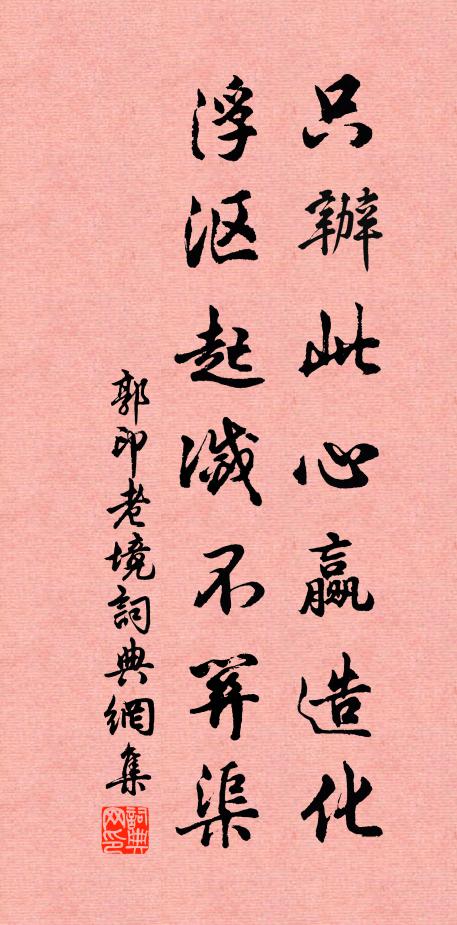 只辦此心贏造化
浮沤起滅不關渠
郭印老境詞典網集
詞典
网印